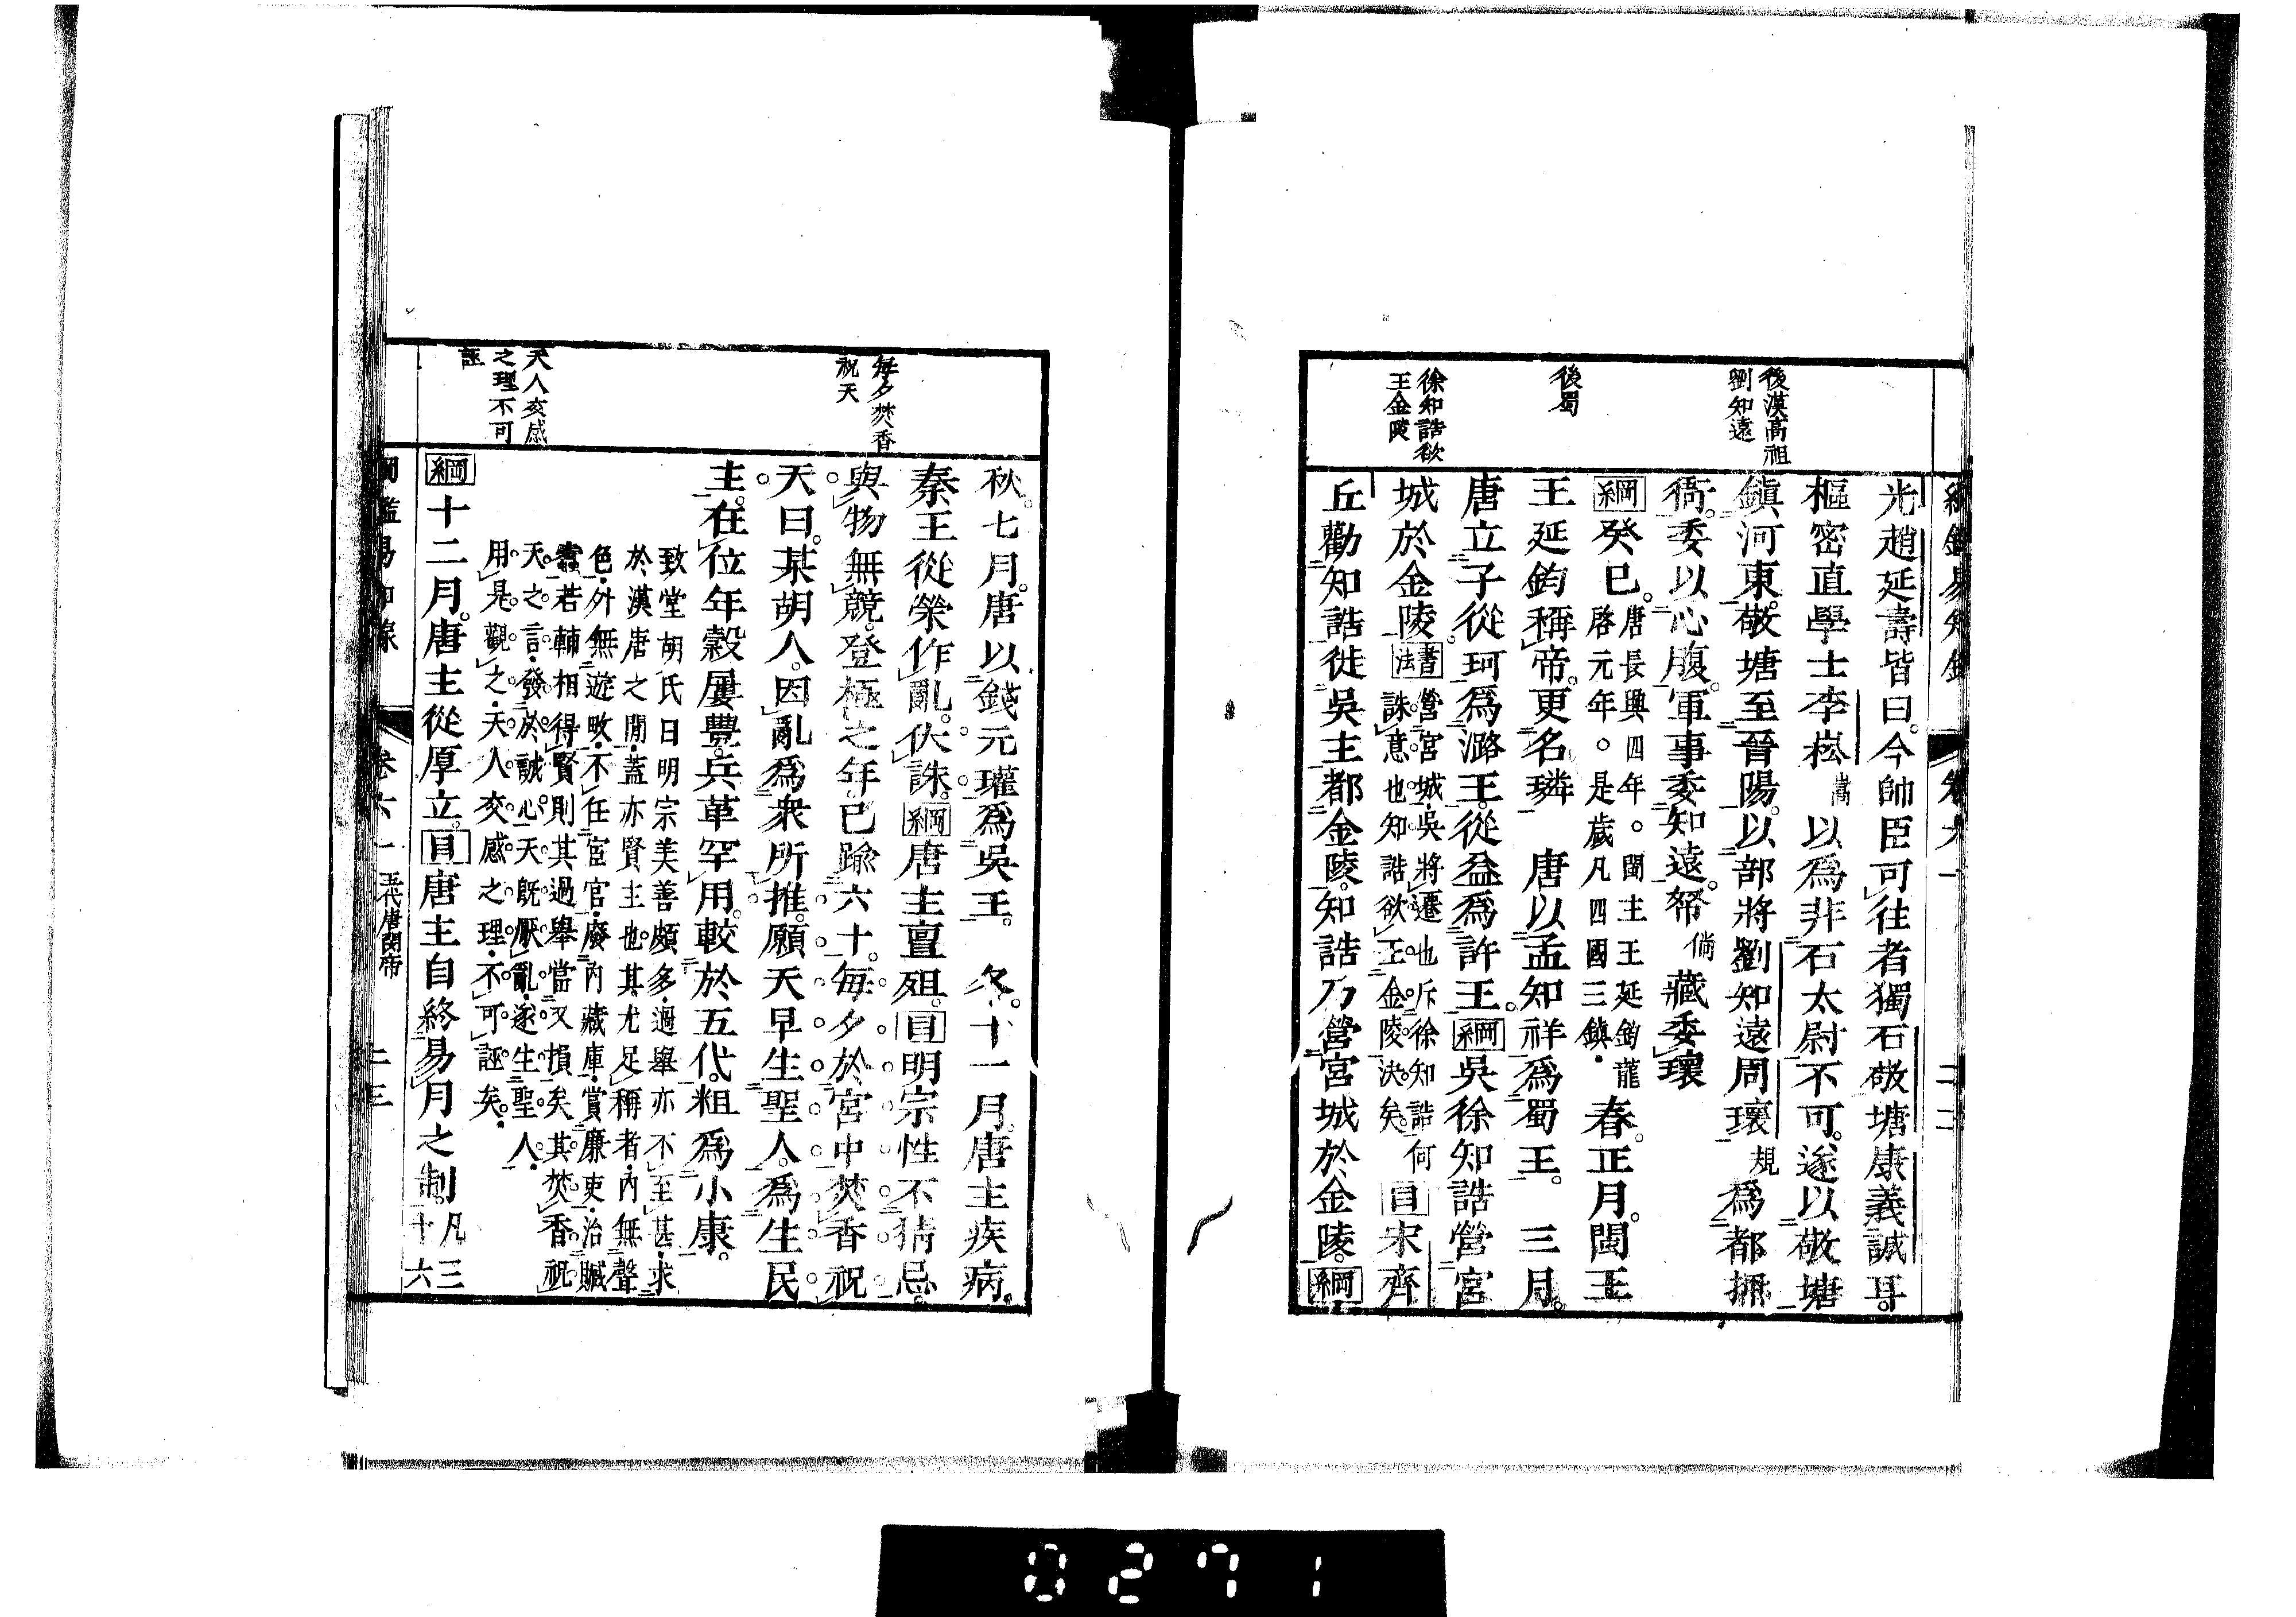 後漢高祖
劉知遠
後蜀
徐知誥欲
王金陵
光趙延壽皆曰。今帥臣可往者獨石敬塘康義誠耳。
樞密直學士李崧嵩以為非石太尉不可。遂以敬塘
鎮河東。敬塘至晉陽。以部將劉知遠周瓌規為都押
衙。委以心腹。軍事委知遠。帑倘藏委瓌
綱癸巳。唐長興四年。閩主王延鈞龍
啓元年。是歲凡四國三鎮。春。正月。閩王
王延鈞稱帝。更名璘　唐以孟知祥爲蜀王。　三月。
唐立子從珂爲潞王。從益爲許王。綱吳徐知誥營宮
城於金陵。書法營宮城。吳將遷也。斥徐知誥何
誅意也。知誥欲王金陵決矣。目宋齊
丘勸知誥徙吳主都金陵。知誥乃營宮城於金陵。綱
每夕焚香
祝天
天人交感
之理不可
誣
秋。七月。唐以錢元瓘爲吳王。　冬。十一月。唐主疾病。
秦王從榮作亂。伏誅。綱唐主亶殂。目明宗性不猜忌。
與物無競。登極之年。已踰六十。每夕於宮中焚香祝
天曰。某胡人。因亂爲衆所推。願天早生聖人。爲生民
主。在位年穀屢豐。兵革罕用。較於五代。粗爲小康。
致堂胡氏曰明宗美善頗多。過舉亦不至甚。求
於漢唐之閒。蓋亦賢主也。其尤足稱者。內無聲
色。外無遊畋。不任宦官。廢內藏庫。賞廉吏。治贓
蠹。若輔相得賢則其過舉當又損矣。其焚香祝
天之言。發於誠心。天既厭亂。遂生聖人。
用是觀之。天人交感之理。不可誣矣。
綱十二月。唐主從厚立。目唐主自終易月之制。凡三
十六
卷六一　五代唐閔帝　二三